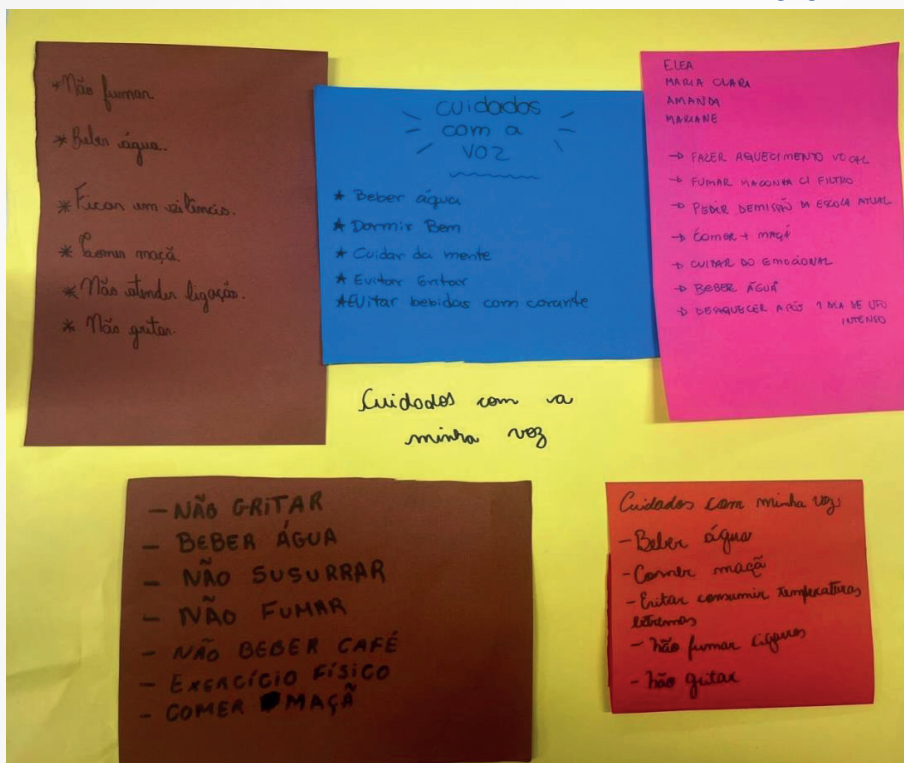 * Não fumar.
* Beber água.
* Ficar em silêncio.
* Comer maçã.
* Não atender ligação.
* Não gritar.
cuidados
com a
voz
* Beber água
* Dormir Bem
* Cuidar da mente
* Evitar Gritar
* Evitar bebidas com corante
MARIA CLARA
AMANDA
MARIANE
→ FAZER AQUECIMENTO VOCAL
→ FUMAR MACONHA C/ FILTRO
→ PEDIR DEMISSÃO DA ESCOLA ATUAL
→ COMER + MAÇÃ
→ CUIDAR DO EMOCIONAL
→ BEBER ÁGUA
→ DESAQUECER APÓS 1 DIA DE USO
INTENSO
Cuidados com a
minha voz
- NÃO GRITAR
- BEBER ÁGUA
- NÃO SUSURRAR
- NÃO FUMAR
- NÃO BEBER CAFÉ
- EXERCÍCIO FÍSICO
- COMER MAÇÃ
Cuidados com minha voz:
- Beber água
- Comer maçã
- Evitar consumir temperaturas
extremas
- não fumar cigarros
- não gritar